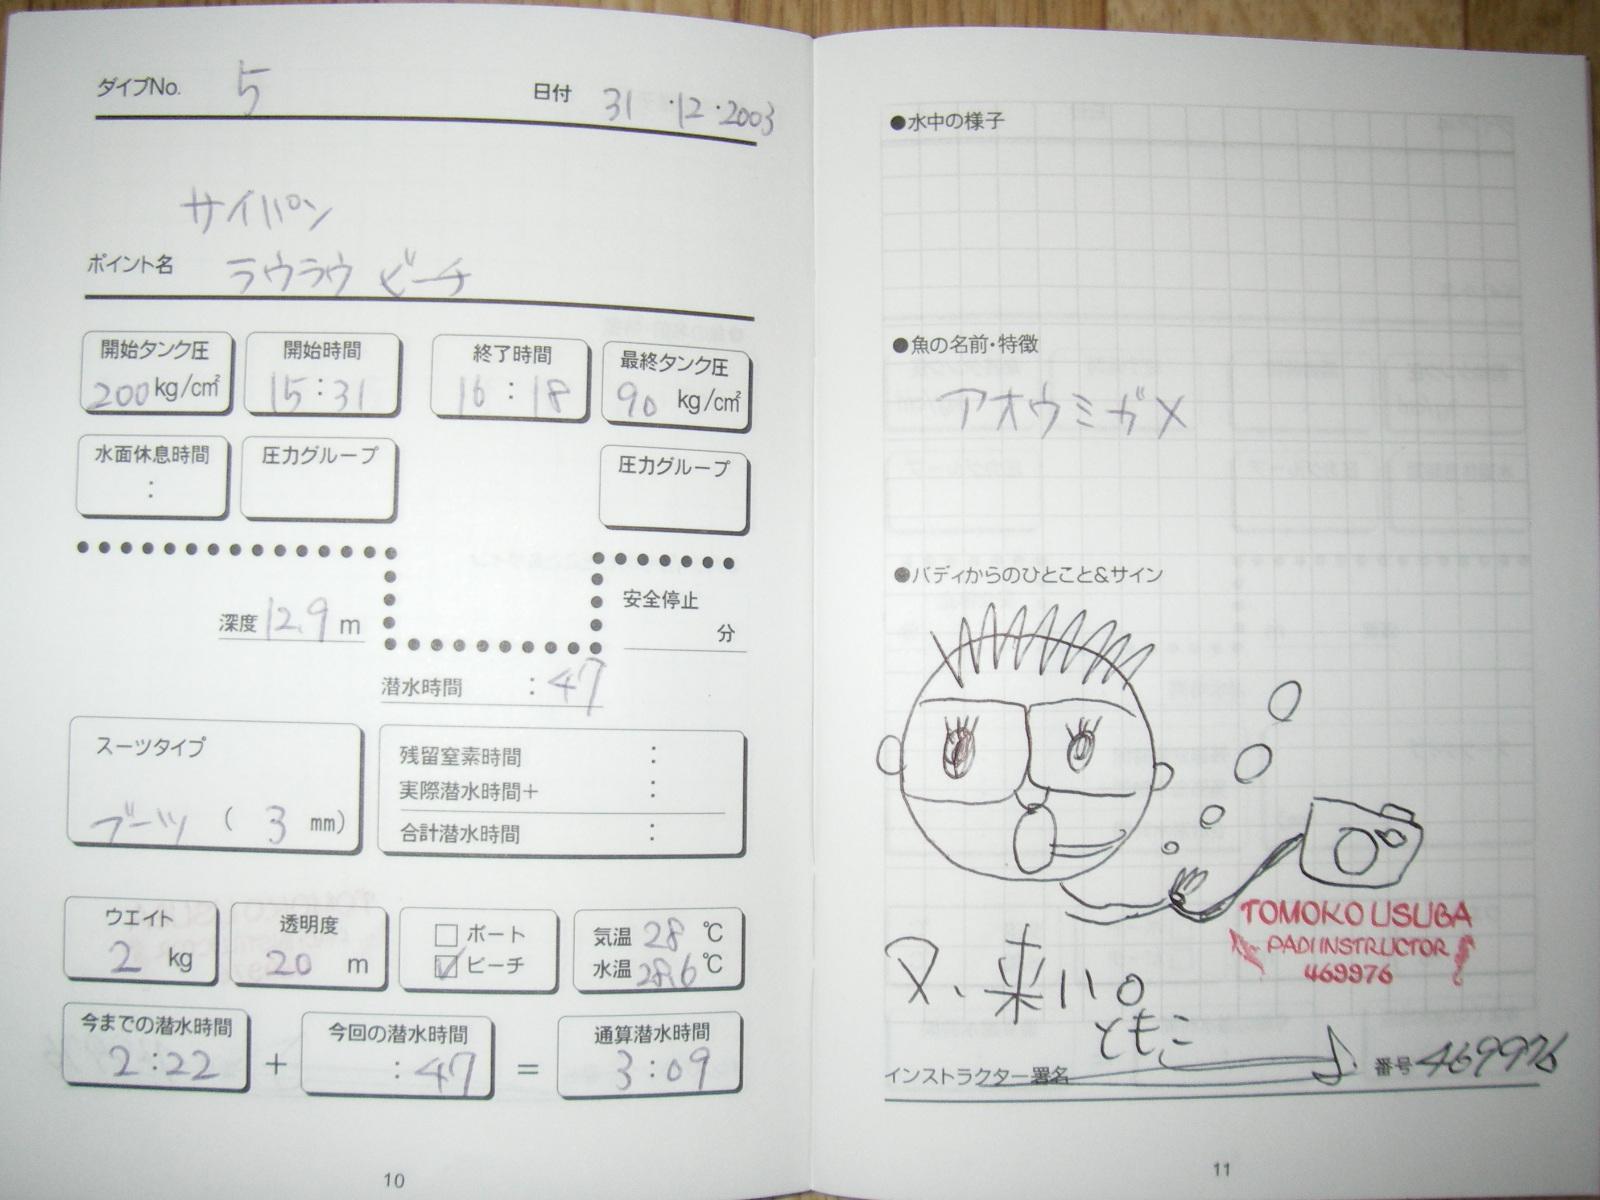 ダイブNo. 5 日付 31・12・2003
サイパン
ポイント名 ラウラウ ビーチ
開始タンク圧 開始時間 終了時間 最終タンク圧
200kg/cm² 15:31 16:18 90 kg/cm²
水面休息時間 圧力グループ 圧力グループ
:
安全停止
深度12.9 m 分
潜水時間 :47
スーツタイプ
ブーツ ( 3 mm)
残留窒素時間 :
実際潜水時間+ :
合計潜水時間 :
ウエイト 透明度 ボート 気温 28 ℃
2 kg 20 m ビーチ 水温 28.6 ℃
今までの潜水時間 今回の潜水時間 通算潜水時間
2:22 + :47 = 3:09
10
●水中の様子
●魚の名前・特徴
アオウミガメ
●バディからのひとこと&サイン
TOMOKO USUBA
PADI INSTRUCTOR
469976
又、来い。
ともこ
インストラクター署名 番号 469976
11